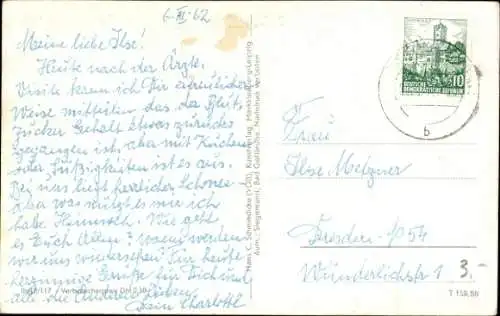 6. XII. 62
Meine liebe Ilse!
Heute nach der Ärzte
Visite kann ich Dir erfreulicher
Weise mitteilen das der Blut-
Zucker Gehalt etwas zurück
gegangen ist, aber mit Kuchen
oder Süßigkeiten ist es aus.
Bei uns liegt herrlicher Schnee
Aber was nützt es mir ich
habe Heimweh. Wie geht
es Euch Allen? wann werden
wir uns wiedersehen? Für heute
herzinnige Grüße für Dich und
alle die Anderen Lieben
Dein Charlottl
117 Verbraucherpreis DM
Hans C. Schmiedicke (VOB), Kunstverlag, Markkleeberg-Leipzig
Aufn.: Siegemund, Bad Gottleuba. Nachdruck verboten
10
DEUTSCHE
DEMOKRATISCHE REPUBLIK
b
Frau
Ilse Metzner
Dresden A 54
Wunderlichstr 1
3.-